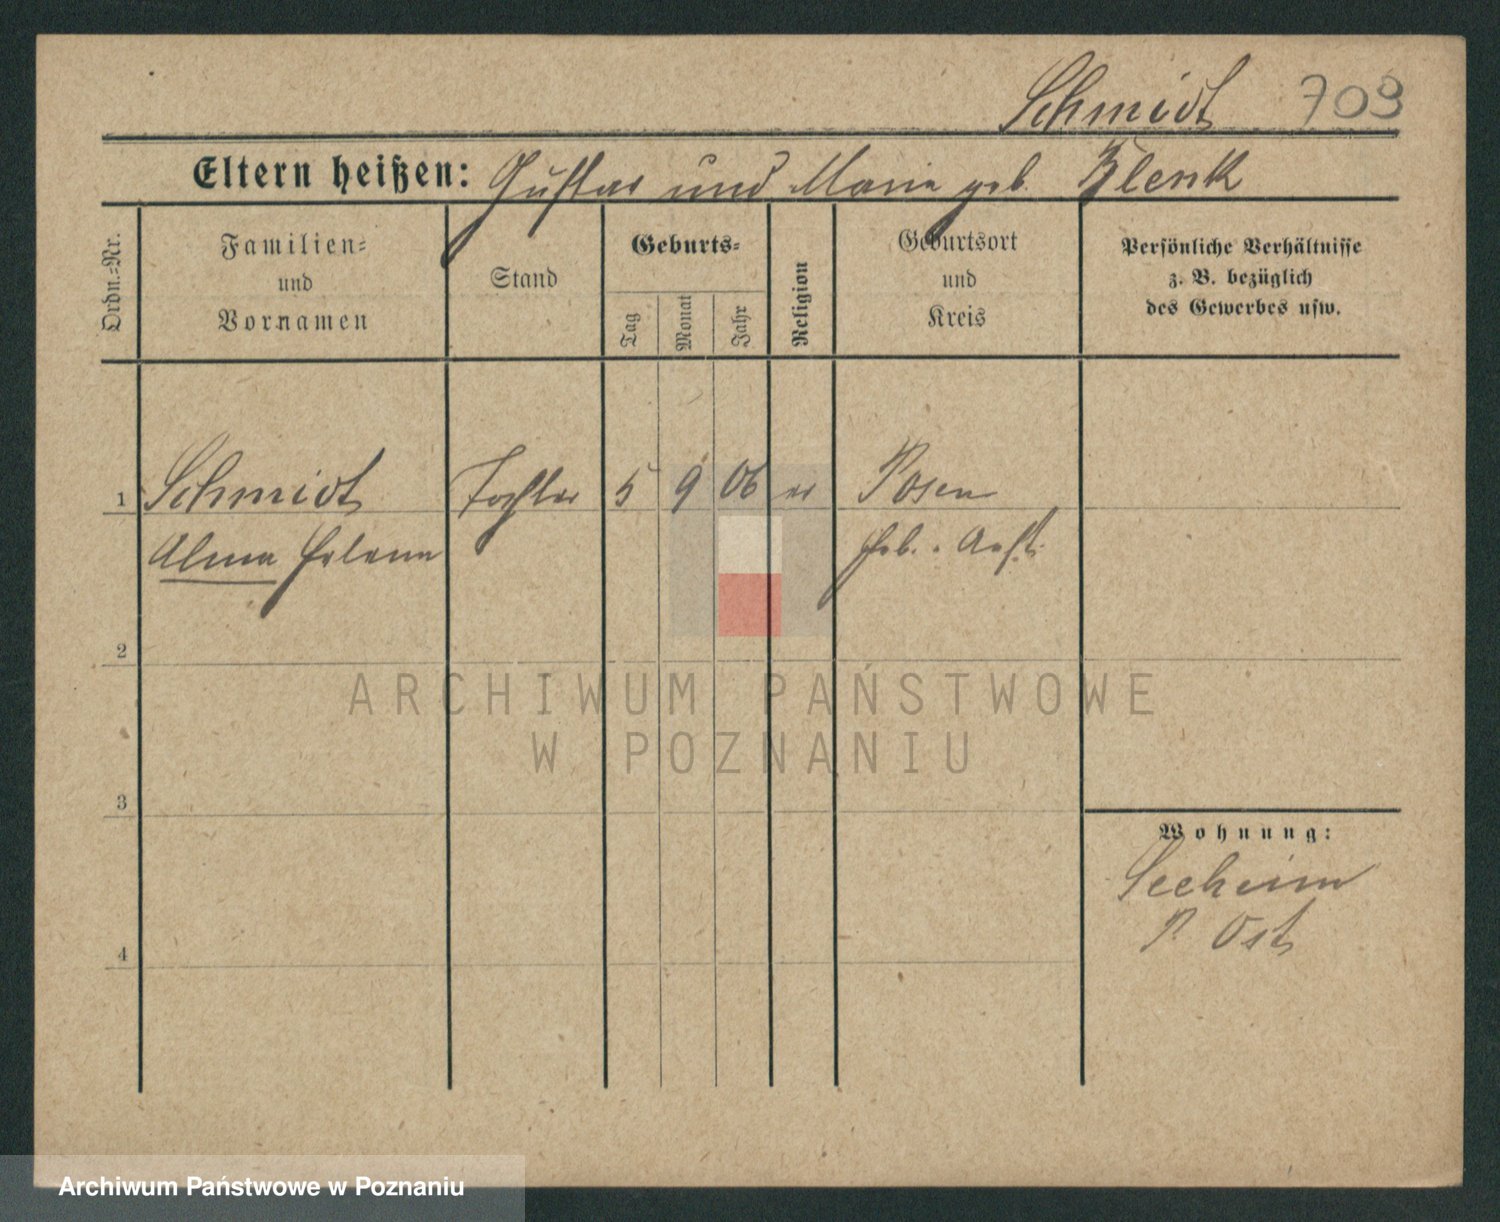 Schmidt 709
Eltern heißen: Gustav und Marie geb. Klenk
Ordn.=Nr.
Familien=
und
Vornamen
Stand
Geburts=
Tag
Monat
Jahr
Religion
Geburtsort
und
Kreis
Persönliche Verhältnisse
z. B. bezüglich
des Gewerbes usw.
1 Schmidt Tochter 5 9 06 ev Posen
Alma Helene Geb.
2
3
4
Wohnung:
Seeheim
P Ost
ARCHIWUM PAŃSTWOWE
W POZNANIU
Archiwum Państwowe w Poznaniu